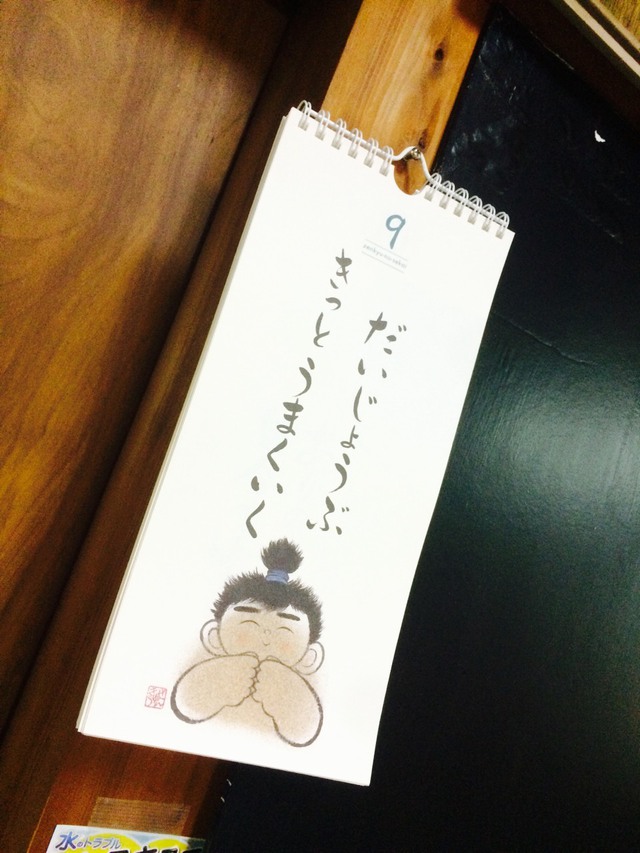 9
だいじょうぶ
きっとうまくいく
水のトラブル